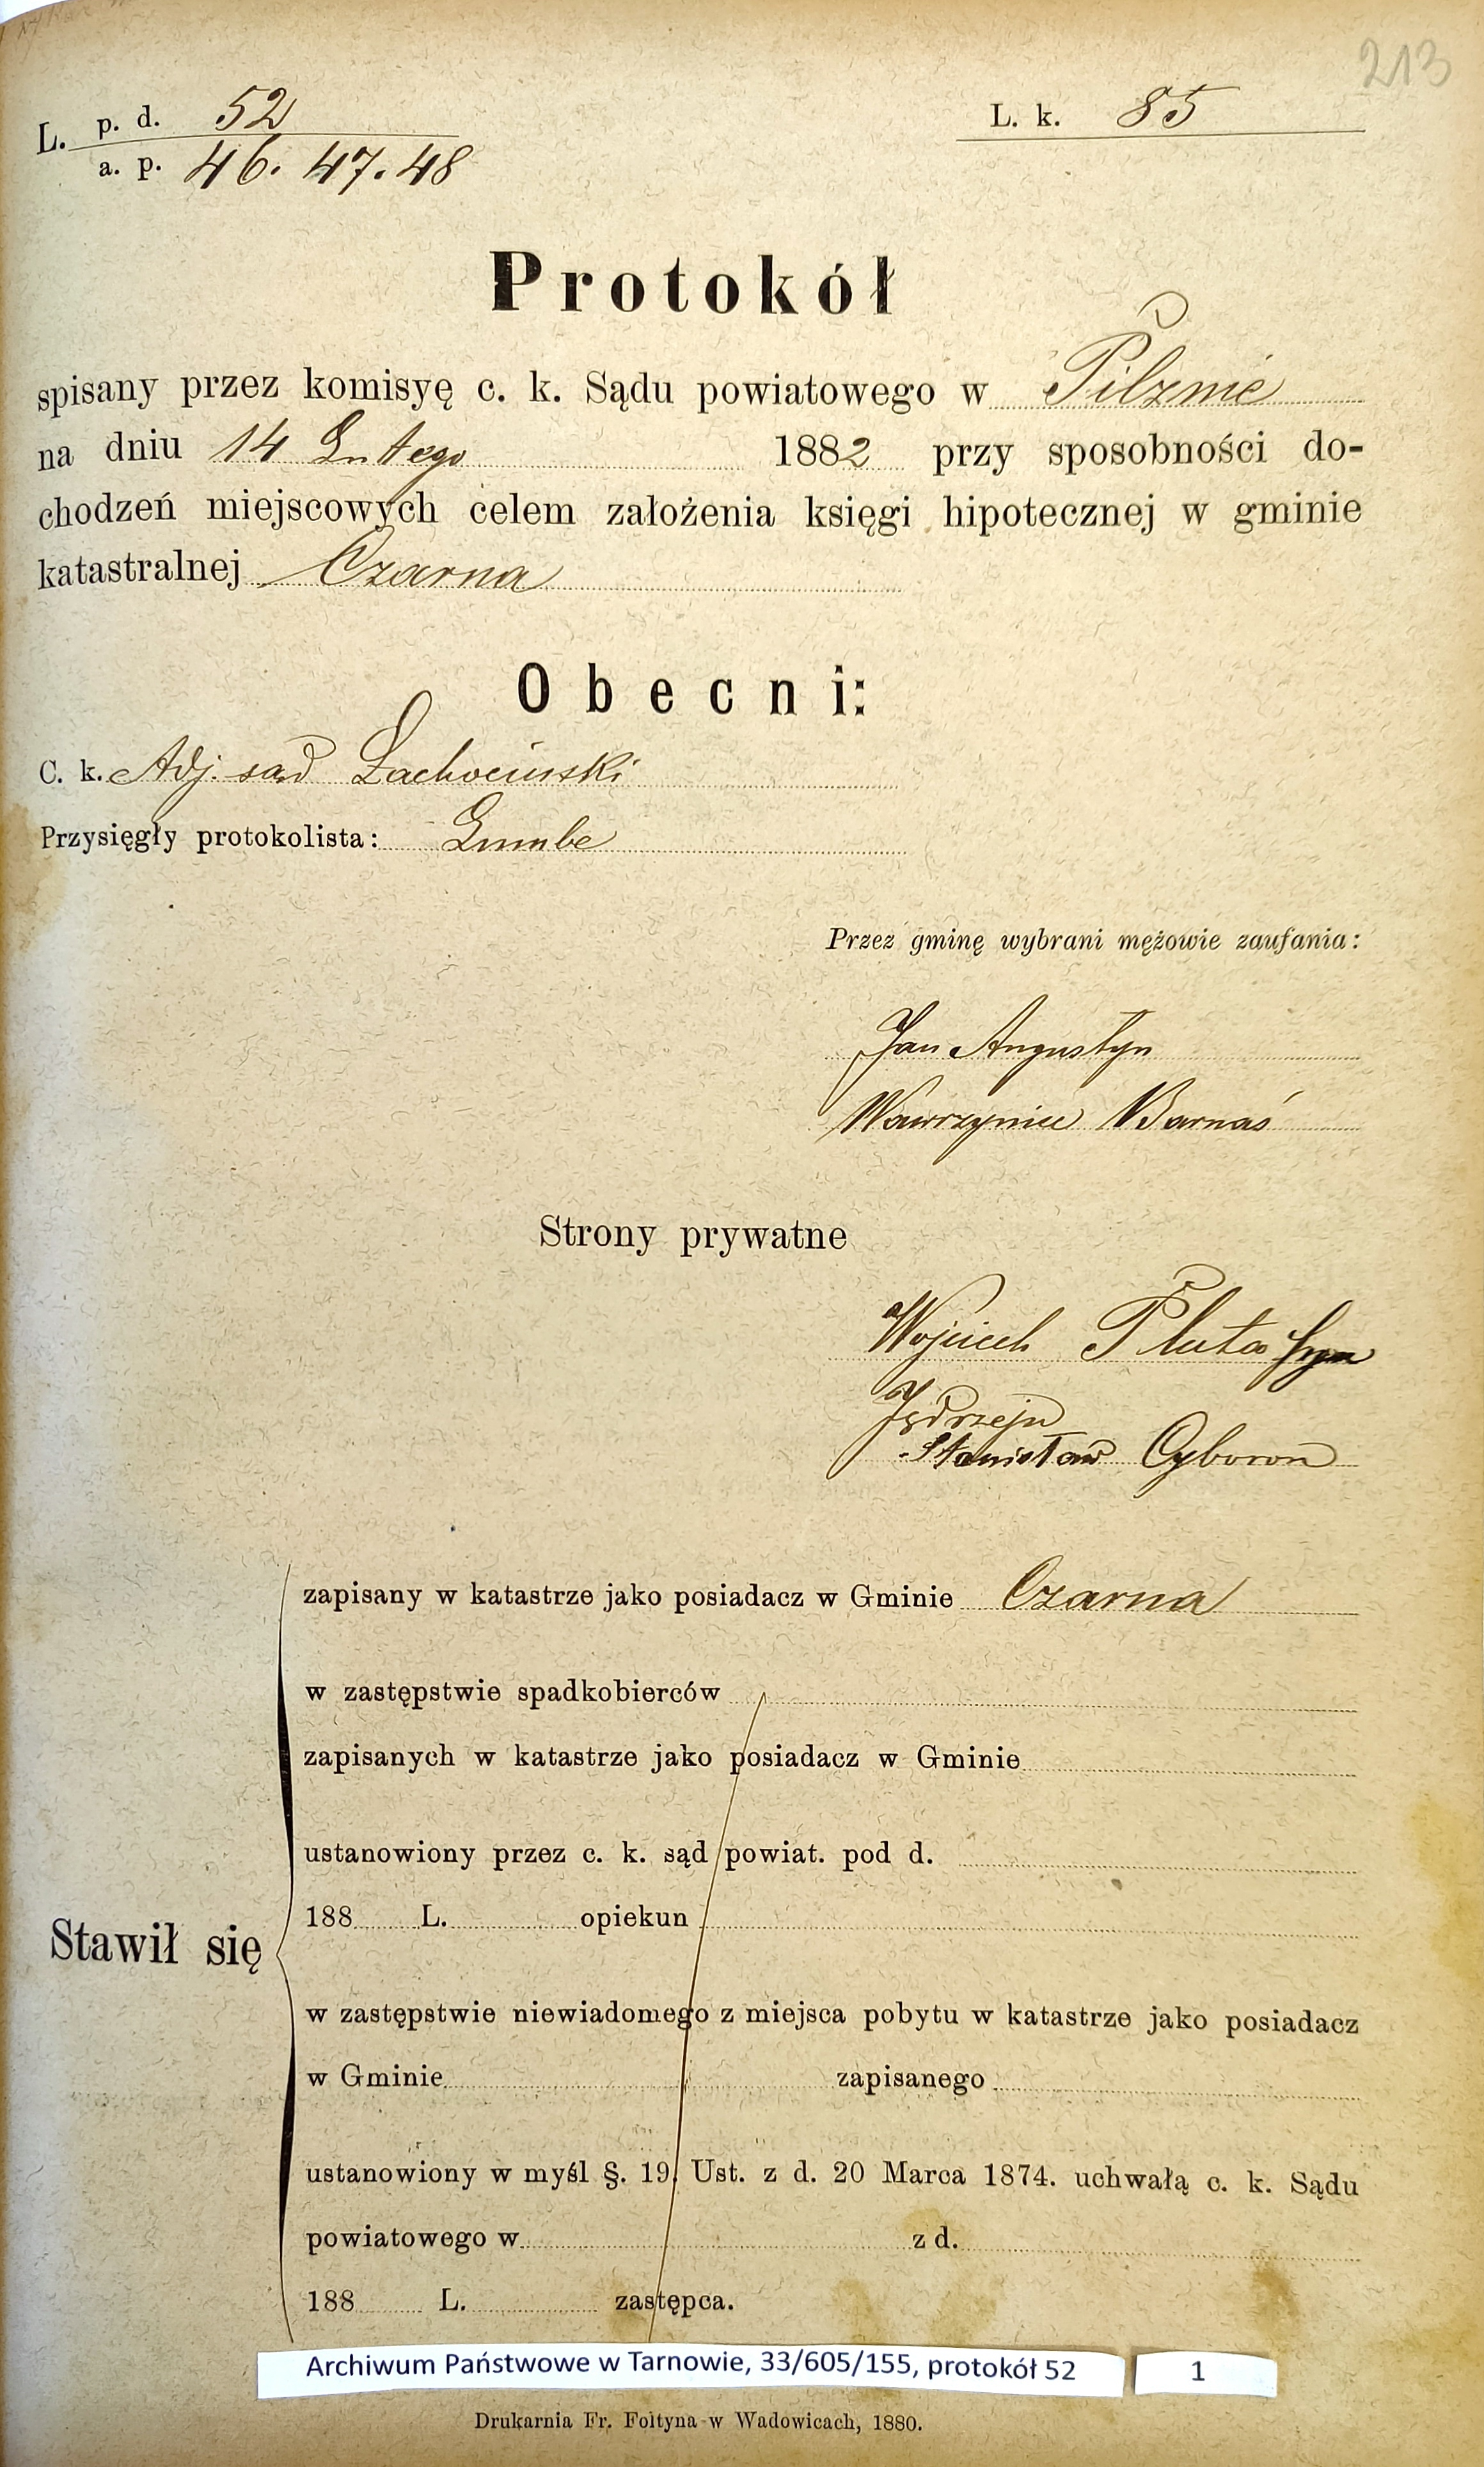 213
L. p. d. 52
a. p. 46. 47. 48
L. k. 85
Protokół
spisany przez komisyę c. k. Sądu powiatowego w Pilznie
na dniu 14 Lutego 1882 przy sposobności do-
chodzeń miejscowych celem założenia księgi hipotecznej w gminie
katastralnej Czarna
Obecni:
C. k. Adj. sąd Lachociński
Przysięgły protokolista:
Przez gminę wybrani mężowie zaufania:
Jan Augustyn
Wawrzyniec Barnaś
Strony prywatne
Wojciech Pluta syn
Jędrzeja
Stanisław Cyboroń
Stawił się
zapisany w katastrze jako posiadacz w Gminie Czarna
w zastępstwie spadkobierców
zapisanych w katastrze jako posiadacz w Gminie
ustanowiony przez c. k. sąd powiat. pod d.
188 L. opiekun
w zastępstwie niewiadomego z miejsca pobytu w katastrze jako posiadacz
w Gminie zapisanego
ustanowiony w myśl §. 19. Ust. z d. 20 Marca 1874. uchwałą c. k. Sądu
powiatowego w z d.
188 L. zastępca.
Archiwum Państwowe w Tarnowie, 33/605/155, protokół 52
1
Drukarnia Fr. Foltyna w Wadowicach, 1880.